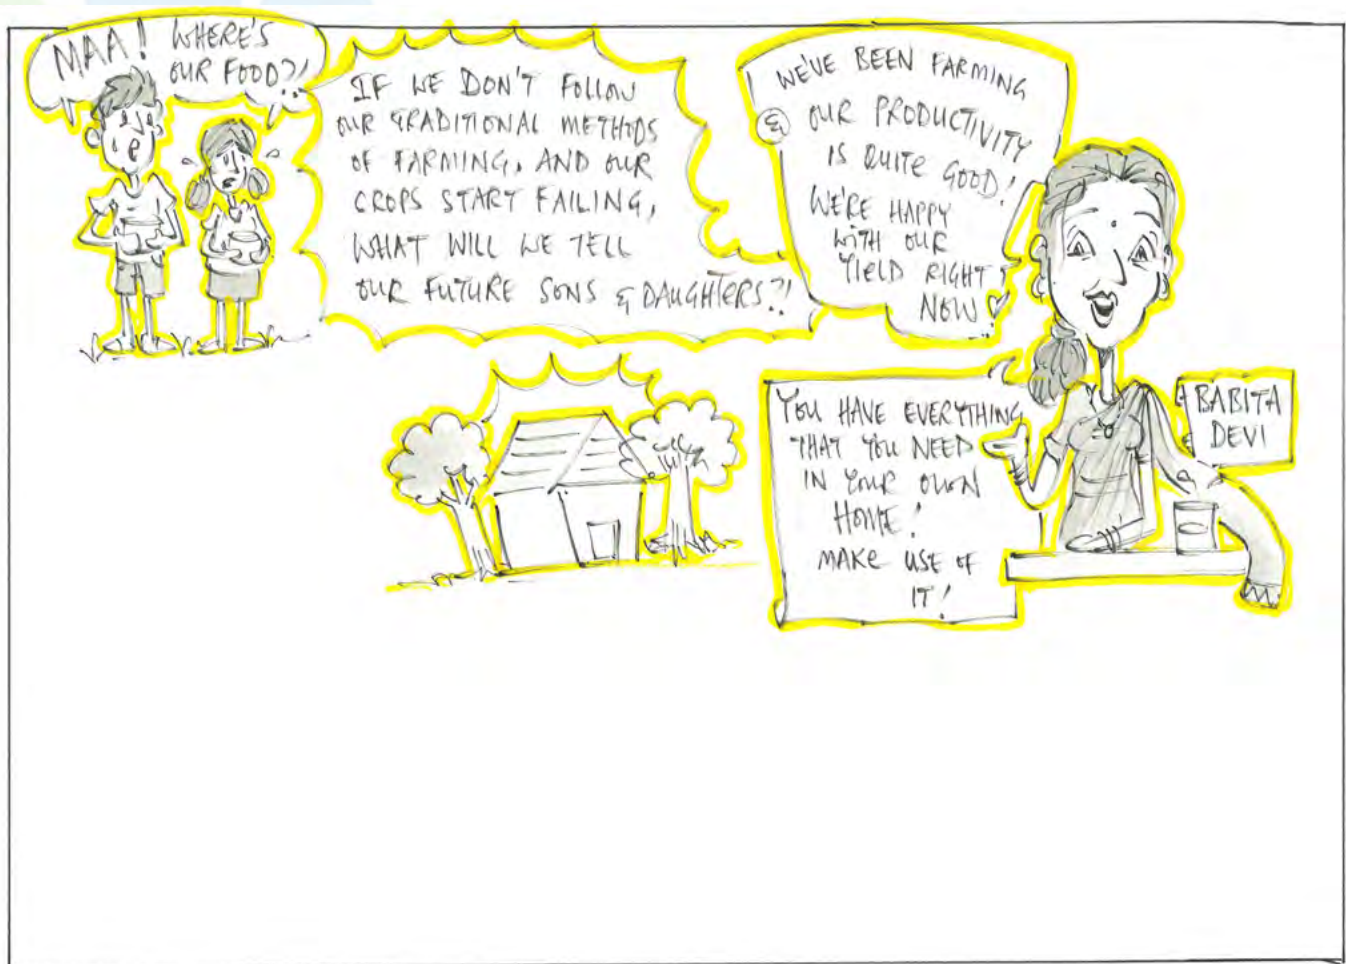 MAA! WHERE'S
OUR FOOD?!
IF WE DON'T FOLLOW
OUR TRADITIONAL METHODS
OF FARMING, AND OUR
CROPS START FAILING,
WHAT WILL WE TELL
OUR FUTURE SONS & DAUGHTERS?!
WE'VE BEEN FARMING
& OUR PRODUCTIVITY
IS QUITE GOOD!
WE'RE HAPPY
WITH OUR
YIELD RIGHT
NOW!
YOU HAVE EVERYTHING
THAT YOU NEED
IN YOUR OWN
HOME!
MAKE USE OF
IT!
BABITA
DEVI